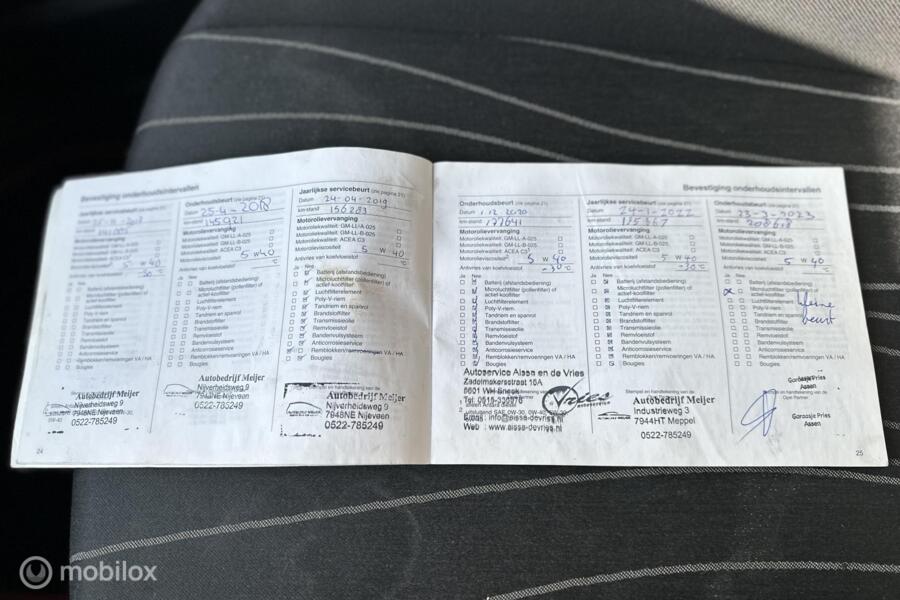 Bevestiging onderhoudsintervallen
Motorolievervanging
Motoroliekwaliteit: GM-LL-A-025
Motoroliekwaliteit: GM-LL-B-025
Motoroliekwaliteit: ACEA C3
5 W 40
-30°C
Ja Nee
Batterij (afstandsbediening)
Microluchtfilter (pollenfilter) of
actief-koolfilter
Luchtfilterelement
Poly-V-riem
Tandriem en spanrol
Brandstoffilter
Transmissieolie
Remvloeistof
Bandenvulsysteem
Anticorrosieservice
Remblokken/remvoeringen VA / HA
Bougies
Autobedrijf Meijer
Nijverheidsweg 9
7948NE Nijeveen
0522-785249
24
Onderhoudsbeurt (zie pagina 21)
Datum 25-4-2018
km-stand 145921
Motorolievervanging
Motoroliekwaliteit: GM-LL-A-025
Motoroliekwaliteit: GM-LL-B-025
Motoroliekwaliteit: ACEA C3
Motorolieviscositeit 5 W 40
Antivries van koelvloeistof °C
Ja Nee
Batterij (afstandsbediening)
Microluchtfilter (pollenfilter) of
actief-koolfilter
Luchtfilterelement
Poly-V-riem
Tandriem en spanrol
Brandstoffilter
Transmissieolie
Remvloeistof
Bandenvulsysteem
Anticorrosieservice
Remblokken/remvoeringen VA / HA
Bougies
Autobedrijf Meijer
Nijverheidsweg 9
7948NE Nijeveen
0522-785249
Jaarlijkse servicebeurt (zie pagina 21)
Datum 24-04-2019
km-stand 156283
Motorolievervanging
Motoroliekwaliteit: GM-LL-A-025
Motoroliekwaliteit: GM-LL-B-025
Motoroliekwaliteit: ACEA C3
Motorolieviscositeit 5 W 40
Antivries van koelvloeistof °C
Ja Nee
Batterij (afstandsbediening)
Microluchtfilter (pollenfilter) of
actief koolfilter
Luchtfilterelement
Poly-V-riem
Tandriem en spanrol
Brandstoffilter
Transmissieolie
Remvloeistof
Bandenvulsysteem
Anticorrosieservice
Remblokken/remvoeringen VA / HA
Bougies
Autobedrijf Meijer
Nijverheidsweg 9
7948NE Nijeveen
0522-785249
Bevestiging onderhoudsintervallen
Onderhoudsbeurt (zie pagina 21)
Datum 1.12 2020
km-stand 177641
Motorolievervanging
Motoroliekwaliteit: GM-LL-A-025
Motoroliekwaliteit: GM-LL-B-025
Motoroliekwaliteit: ACEA C3
Motorolieviscositeit 5 W 40
Antivries van koelvloeistof -30°C
Ja Nee
Batterij (afstandsbediening)
Microluchtfilter (pollenfilter) of
actief koolfilter
Luchtfilterelement
Poly-V-riem
Tandriem en spanrol
Brandstoffilter
Transmissieolie
Remvloeistof
Bandenvulsysteem
Anticorrosieservice
Remblokken/remvoeringen VA / HA
Bougies
Autoservice Aissa en de Vries
Zadelmakersstraat 16A
8601 WH Sneek
Web : www.aissa-devries.nl
Vries
Jaarlijkse servicebeurt (zie pagina 21)
Datum 24-1-2022
km-stand
Motorolievervanging
Motoroliekwaliteit: GM-LL-A-025
Motoroliekwaliteit: GM-LL-B-025
Motoroliekwaliteit: ACEA C3
Motorolieviscositeit 5 W 40
Antivries van koelvloeistof -30°C
Ja Nee
Batterij (afstandsbediening)
Microluchtfilter (pollenfilter) of
actief koolfilter
Luchtfilterelement
Poly-V-riem
Tandriem en spanrol
Brandstoffilter
Transmissieolie
Remvloeistof
Bandenvulsysteem
Anticorrosieservice
Remblokken/remvoeringen VA / HA
Bougies
Autobedrijf Meijer
Industrieweg 3
7944HT Meppel
0522-785249
Onderhoudsbeurt (zie pagina 21)
Datum 23-3-2023
km-stand
Motorolievervanging
Motoroliekwaliteit: GM-LL-A-025
Motoroliekwaliteit: GM-LL-B-025
Motoroliekwaliteit: ACEA C3
Motorolieviscositeit 5 W 40
Antivries van koelvloeistof °C
Ja Nee
Batterij (afstandsbediening)
Microluchtfilter (pollenfilter) of
actief koolfilter
Luchtfilterelement
Poly-V-riem
Tandriem en spanrol
Brandstoffilter
Transmissieolie
Remvloeistof
Bandenvulsysteem
Anticorrosieservice
Remblokken/remvoeringen VA / HA
Bougies
beurt
Garaasje Pries
Assen
Garaasje Pries
Assen
25
mobilox